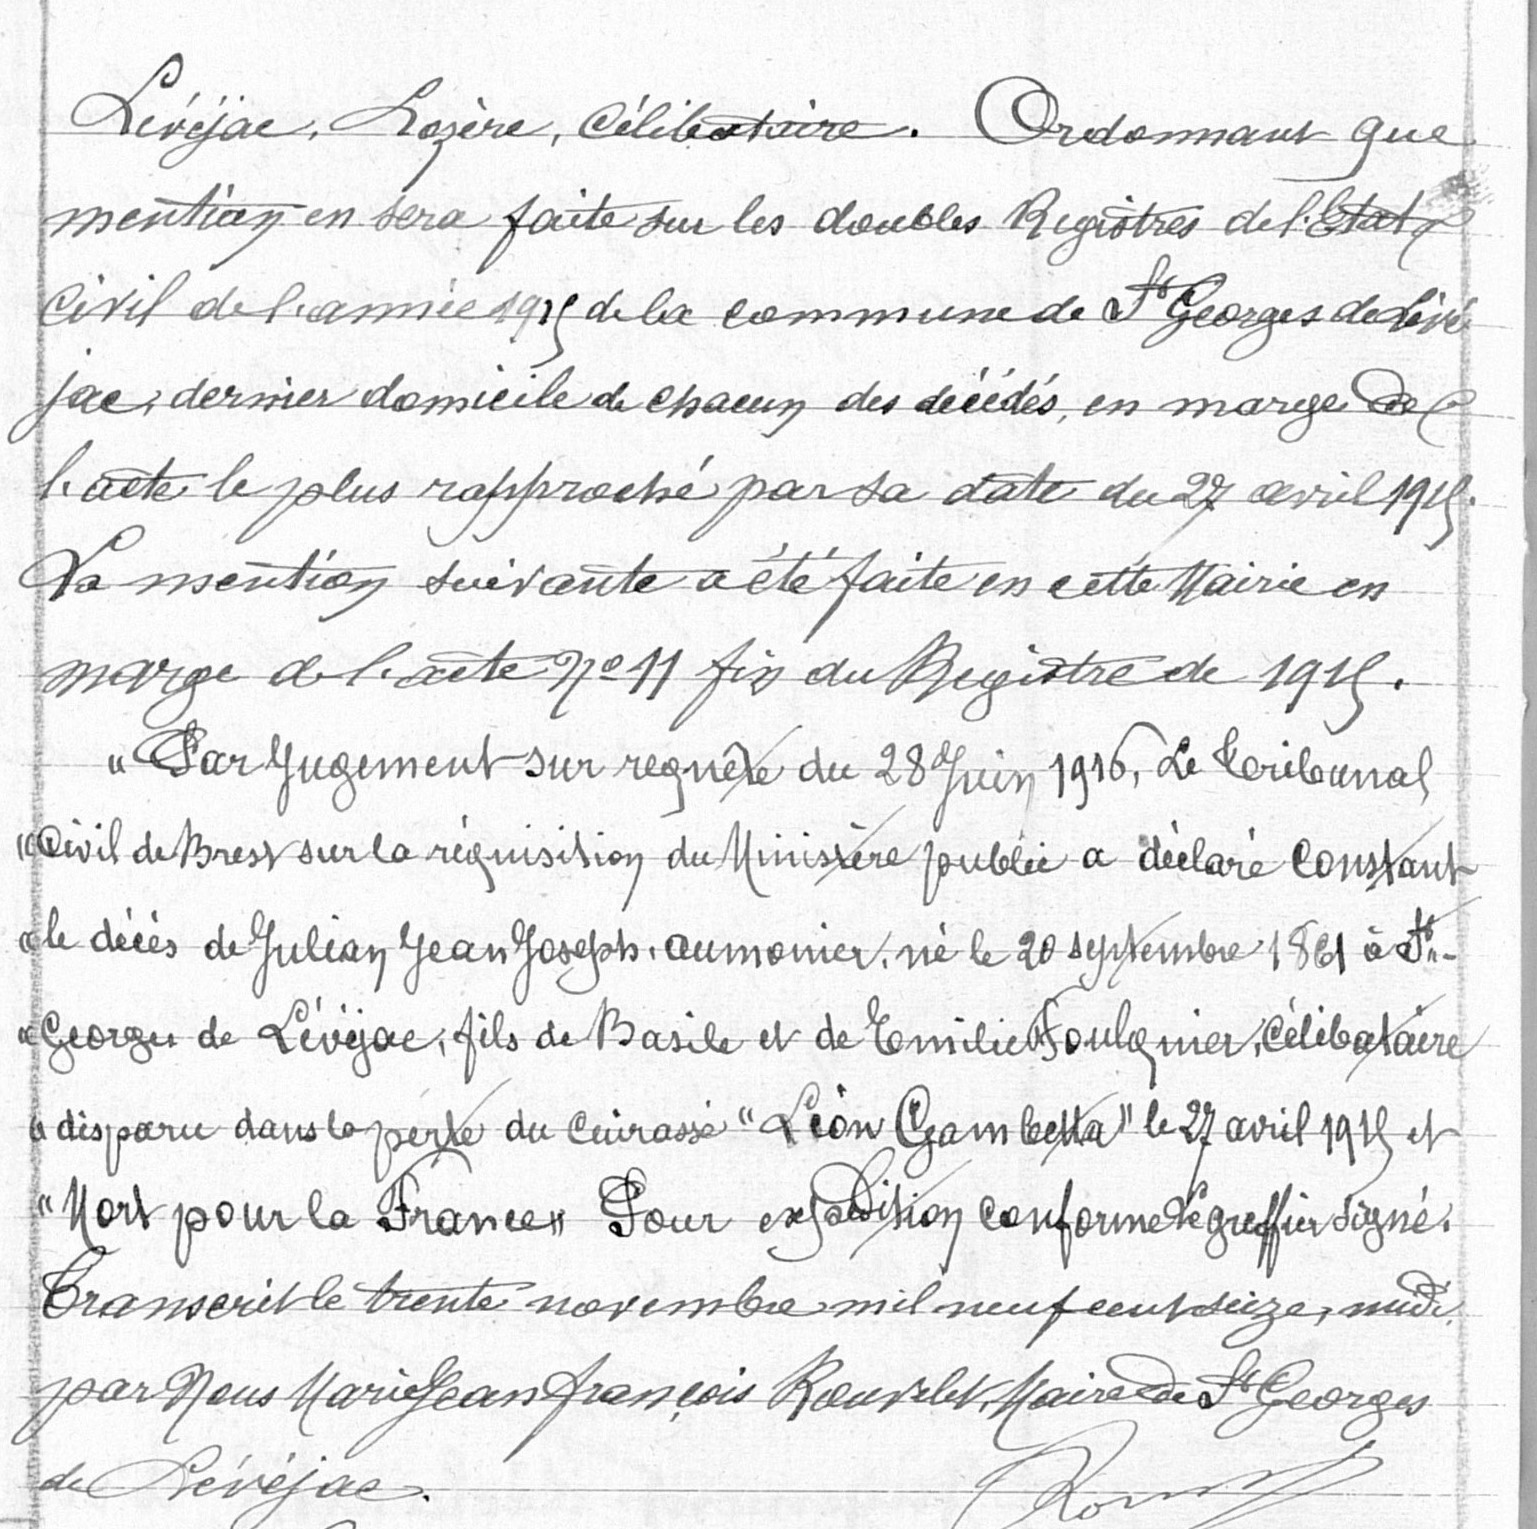 Lévéjac, Lozère, célibataire. Ordonnant que
mention en sera faite sur les doubles Registres de l'Etat
Civil de l'année 1915 de la commune de St Georges de Lévé
jac, dernier domicile de chacun des décédés, en marge de
l'acte le plus rapproché par sa date du 27 avril 1915.
La mention suivante a été faite en cette Mairie en
marge de l'acte No 11 fin du Registre de 1915.
" Par Jugement sur requête du 28 Juin 1916, Le Tribunal
" Civil de Brest sur la réquisition du Ministère public a déclaré constant
" le décès de Julian Jean Joseph, aumonier, né le 20 septembre 1861 à St-
" Georges de Lévéjac, fils de Basile et de Emilie Foulquier, célibataire
" disparu dans la perte du Cuirassé "Léon Gambetta" le 27 avril 1915 et
" Mort pour la France" Pour expédition conforme Le greffier signé.
Transcrit le trente novembre mil neuf cent seize, midi,
par Nous Marie Jean François Rouvelet, Maire de St Georges
de Lévéjac.